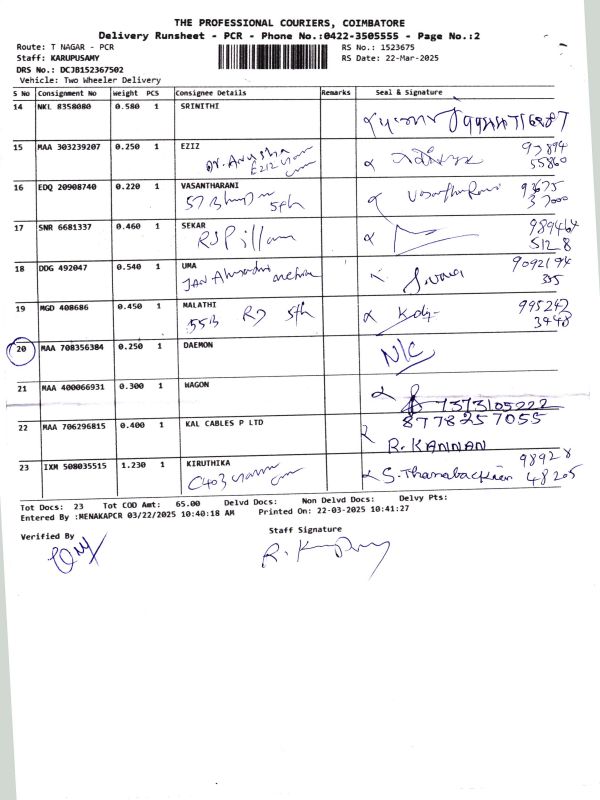 THE PROFESSIONAL COURIERS, COIMBATORE
Delivery Runsheet - PCR - Phone No.:0422-3505555 - Page No.:2
Route: T NAGAR - PCR RS No.: 1523675
Staff: KARUPUSAMY RS Date: 22-Mar-2025
DRS No.: DCJB152367502
Vehicle: Two Wheeler Delivery
S No Consignment No Weight PCS Consignee Details Remarks Seal & Signature
14 NKL 8358080 0.580 1 SRINITHI
15 MAA 303239207 0.250 1 EZIZ
Dr. Anusha
55860
16 EDQ 20908740 0.220 1 VASANTHARANI
5th
37000
17 SNR 6681337 0.460 1 SEKAR
5128
18 DDG 492047 0.540 1 UMA
9092194
335
19 MGD 408686 0.450 1 MALATHI
55B RD 5th
995247
3448
20 MAA 708356384 0.250 1 DAEMON
N/C
21 MAA 400066931 0.300 1 WAGON
7373105222
22 MAA 706296815 0.400 1 KAL CABLES P LTD
8778257055
R. KANNAN
23 IXM 508035515 1.230 1 KIRUTHIKA
C403
48205
Tot Docs: 23 Tot COD Amt: 65.00 Delvd Docs: Non Delvd Docs: Delvy Pts:
Entered By :MENAKAPCR 03/22/2025 10:40:18 AM Printed On: 22-03-2025 10:41:27
Verified By Staff Signature